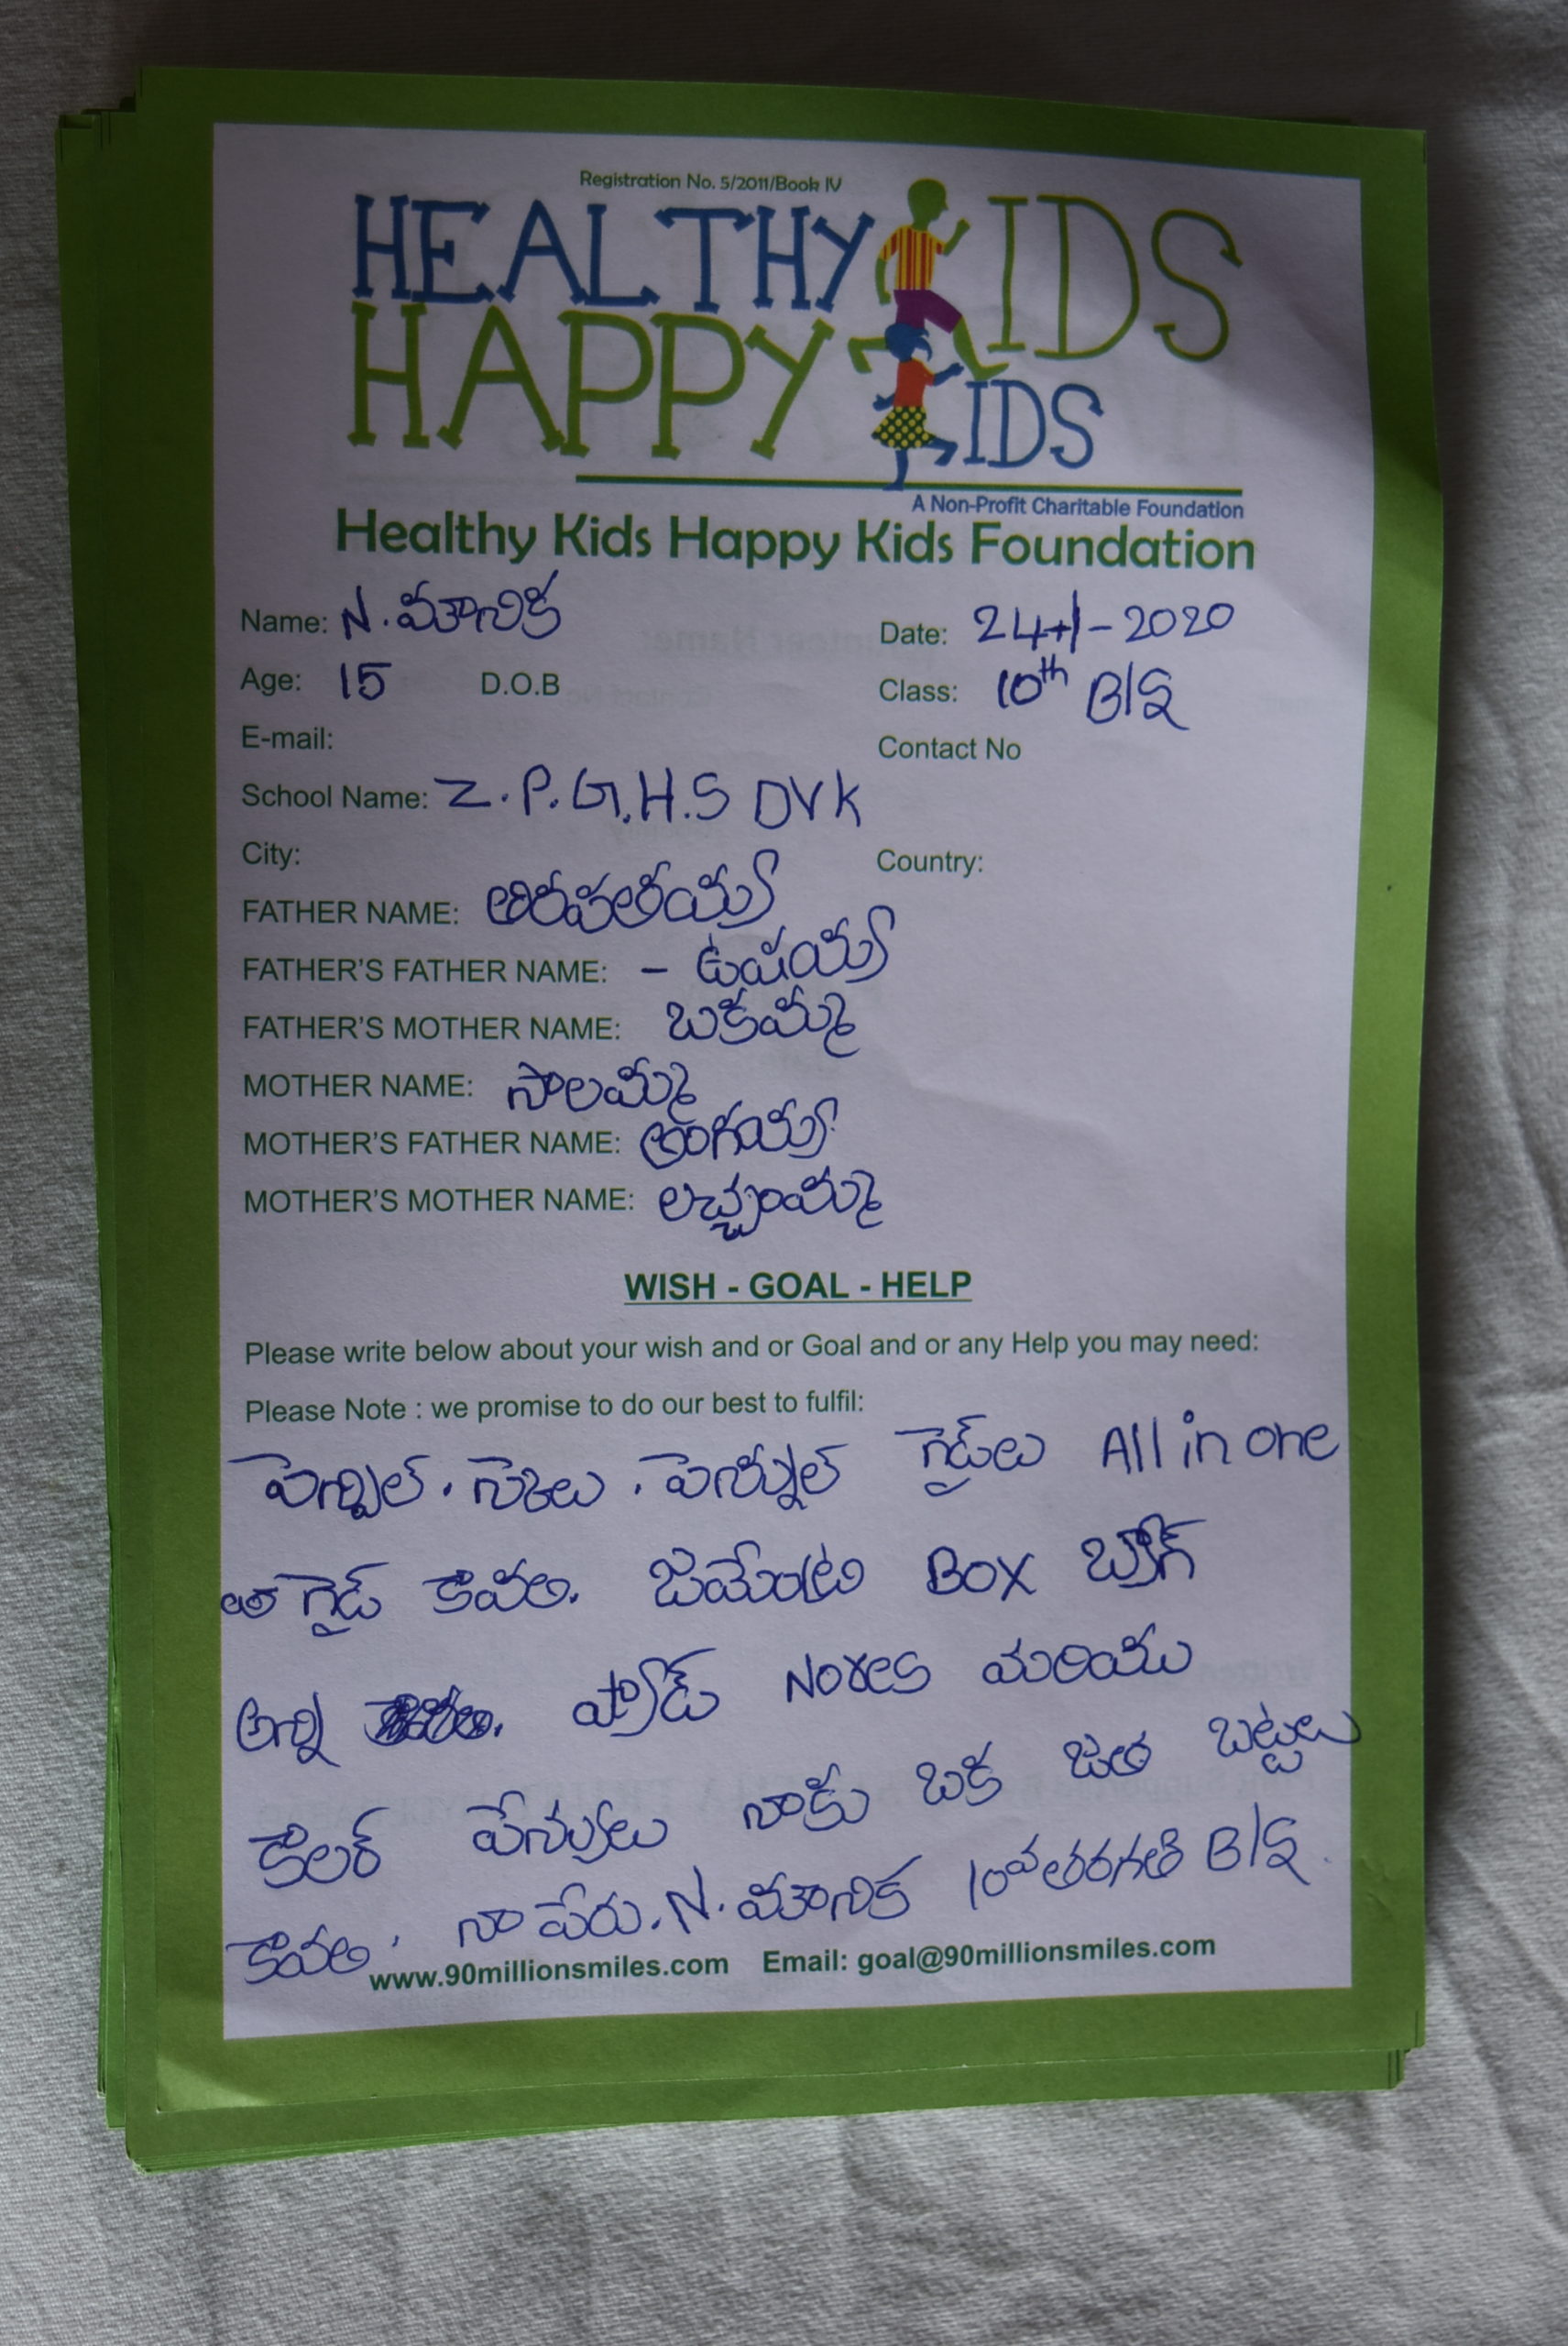 Registration No. 5/2011/Book IV
HEALTHY KIDS
HAPPY KIDS
A Non-Profit Charitable Foundation
Healthy Kids Happy Kids Foundation
Name: N. మౌనిక Date: 24-1-2020
Age: 15 D.O.B Class: 10th B/S
E-mail: Contact No
School Name: Z.P.G.H.S DVK
City: Country:
FATHER NAME: తిరపతయ్య
FATHER'S FATHER NAME: - ఉషయ్య
FATHER'S MOTHER NAME: బకమ్మ
MOTHER NAME: సాలమ్మ
MOTHER'S FATHER NAME: అంగయ్య
MOTHER'S MOTHER NAME: లచ్చుంమ్మ
WISH - GOAL - HELP
Please write below about your wish and or Goal and or any Help you may need:
Please Note : we promise to do our best to fulfil:
పెన్సిల్. స్కెలు. గైడ్‌లు All in one
గైడ్ కావలి. Box బ్యాగ్
అన్ని ప్యాడ్ మరియు
కౌలర్ పేన్నులు నాకు ఒక జత బట్టలు
కావలి. నా పేరు. N. మౌనిక 10వ తరగతి B/S.
www.90millionsmiles.com Email: goal@90millionsmiles.com